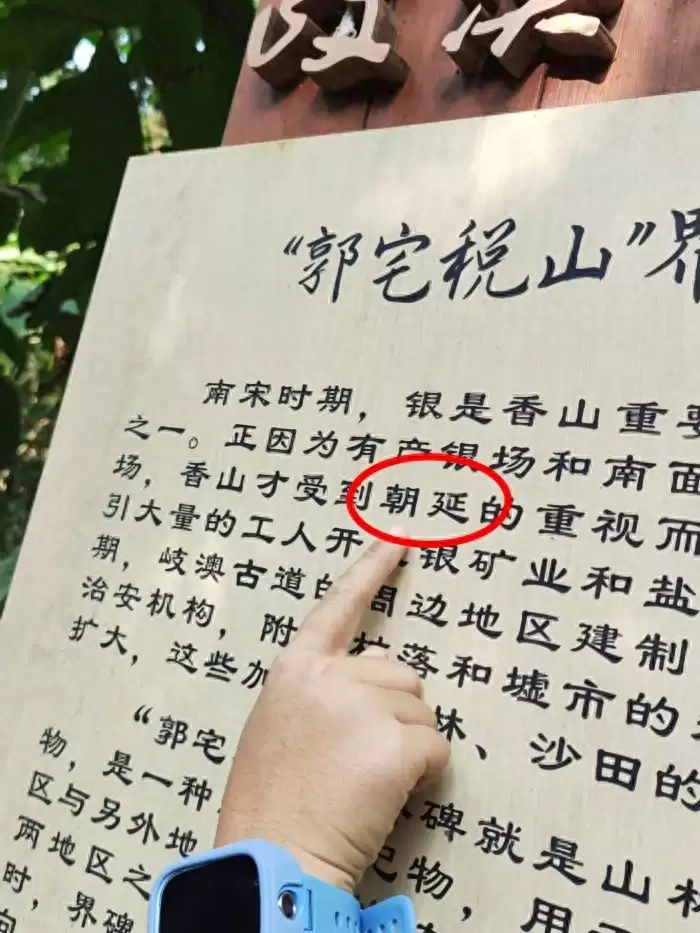 “郭宅税山”界
南宋时期，银是香山重要
之一。正因为有产银场和南面
场，香山才受到朝延的重视而
引大量的工人开银矿业和盐
期，岐澳古道的周边地区建制
治安机构，附村落和墟市的
扩大，这些加林、沙田的
“郭宅碑就是山林
物，是一种记物，用
区与另外地
两地区之
时，界碑